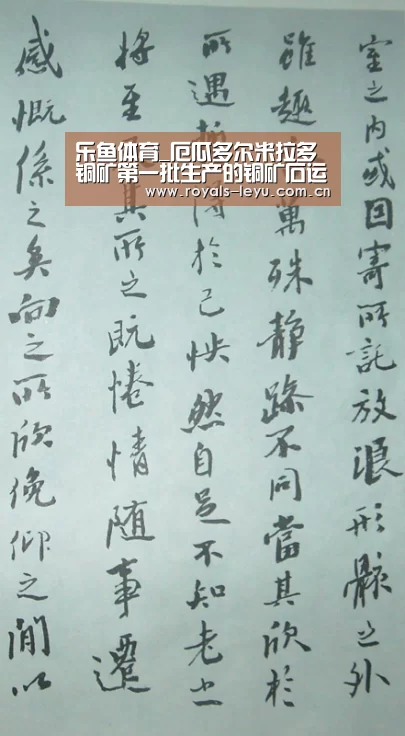 室之内或因寄所託放浪形骸之外
雖趣萬殊静躁不同當其欣於
所遇於己怏然自足不知老之
將至其所之既惓情随事遷
感慨係之矣向之所欣俛仰之間以
乐鱼体育_厄瓜多尔米拉多
铜矿第一批生产的铜矿石运
www.royals-leyu.com.cn